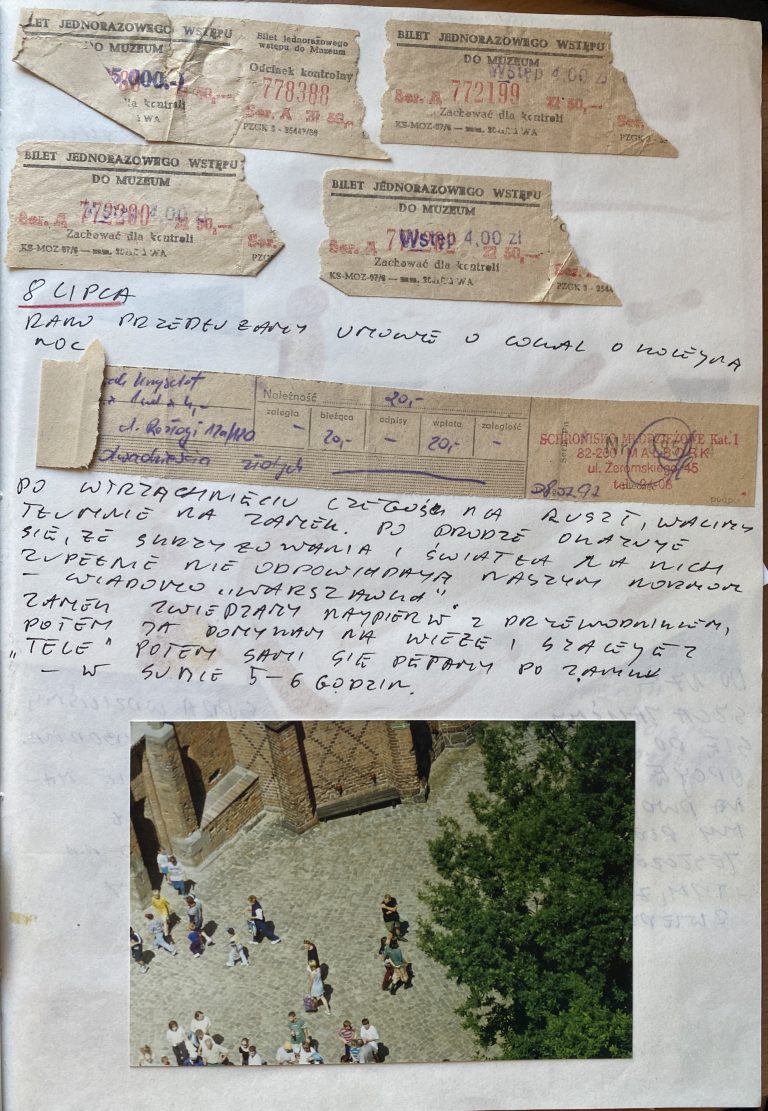 BILET JEDNORAZOWEGO WSTĘPU
DO MUZEUM
5.000.-
Zł 50,—
dla kontroli
WA
Bilet jednorazowego
wstępu do Muzeum
Odcinek kontrolny
778388
Ser. A Zł 50,—
PZGK 3 - 2544?/88
BILET JEDNORAZOWEGO WSTĘPU
DO MUZEUM
Wstęp 4,00 zł
Ser. A 772199 Zł 50,—
Zachować dla kontroli
KS-MOZ-97/6 WA
Ser.
PZGK
BILET JEDNORAZOWEGO WSTĘPU
DO MUZEUM
Ser. A 772200 4,00 zł Zł 50,—
Zachować dla kontroli
KS-MOZ-97/6 WA
Ser.
PZGK
BILET JEDNORAZOWEGO WSTĘPU
DO MUZEUM
Ser. A Wstęp 4,00 zł Zł 50,—
Zachować dla kontroli
KS-MOZ-97/6 WA
PZGK 3 - 254
8 LIPCA
RANO PRZEDŁUŻAMY UMOWĘ O LOKAL O KOLEJNĄ
NOC
Krzysztof
ul. Rozłogi 12a/120
dwadzieścia złotych
Należność 20,-
zaległa bieżąca odpisy wpłata zaległość
– 20,- – 20,- –
SCHRONISKO MŁODZIEŻOWE Kat. I
82-200 MALBORK
ul. Żeromskiego 45
tel.
Nr
Seria
podpis
PO WTRZĄCHNIĘCIU CZEGOŚ NA RUSZT, WALIMY
TŁUMNIE NA ZAMEK. PO DRODZE OKAZUJE
SIĘ, ŻE SKRZYŻOWANIA I ŚWIATŁA NA NICH
ZUPEŁNIE NIE ODPOWIADAJĄ NASZYM NORMOM
– WIADOMO „WARSZAWKA"
ZAMEK ZWIEDZAMY NAJPIERW Z PRZEWODNIKIEM,
POTEM JA DOMYKAM NA WIEŻĘ I SZALEJĘ Z
„TELE" POTEM SAMI SIĘ PĘTAMY PO ZAMKU
– W SUMIE 5–6 GODZIN.